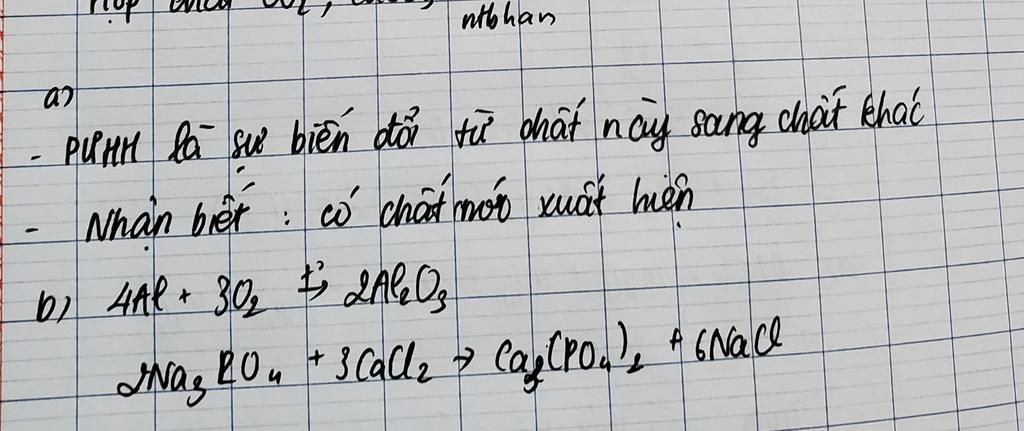 nhbhan
a)
- PƯHH là sự biến đổi từ chất này sang chất khác
- Nhận biết : có chất mới xuất hiện
b) 4Al + 3O₂ →(t°) 2Al₂O₃
2Na₃PO₄ + 3CaCl₂ → Ca₃(PO₄)₂ + 6NaCl